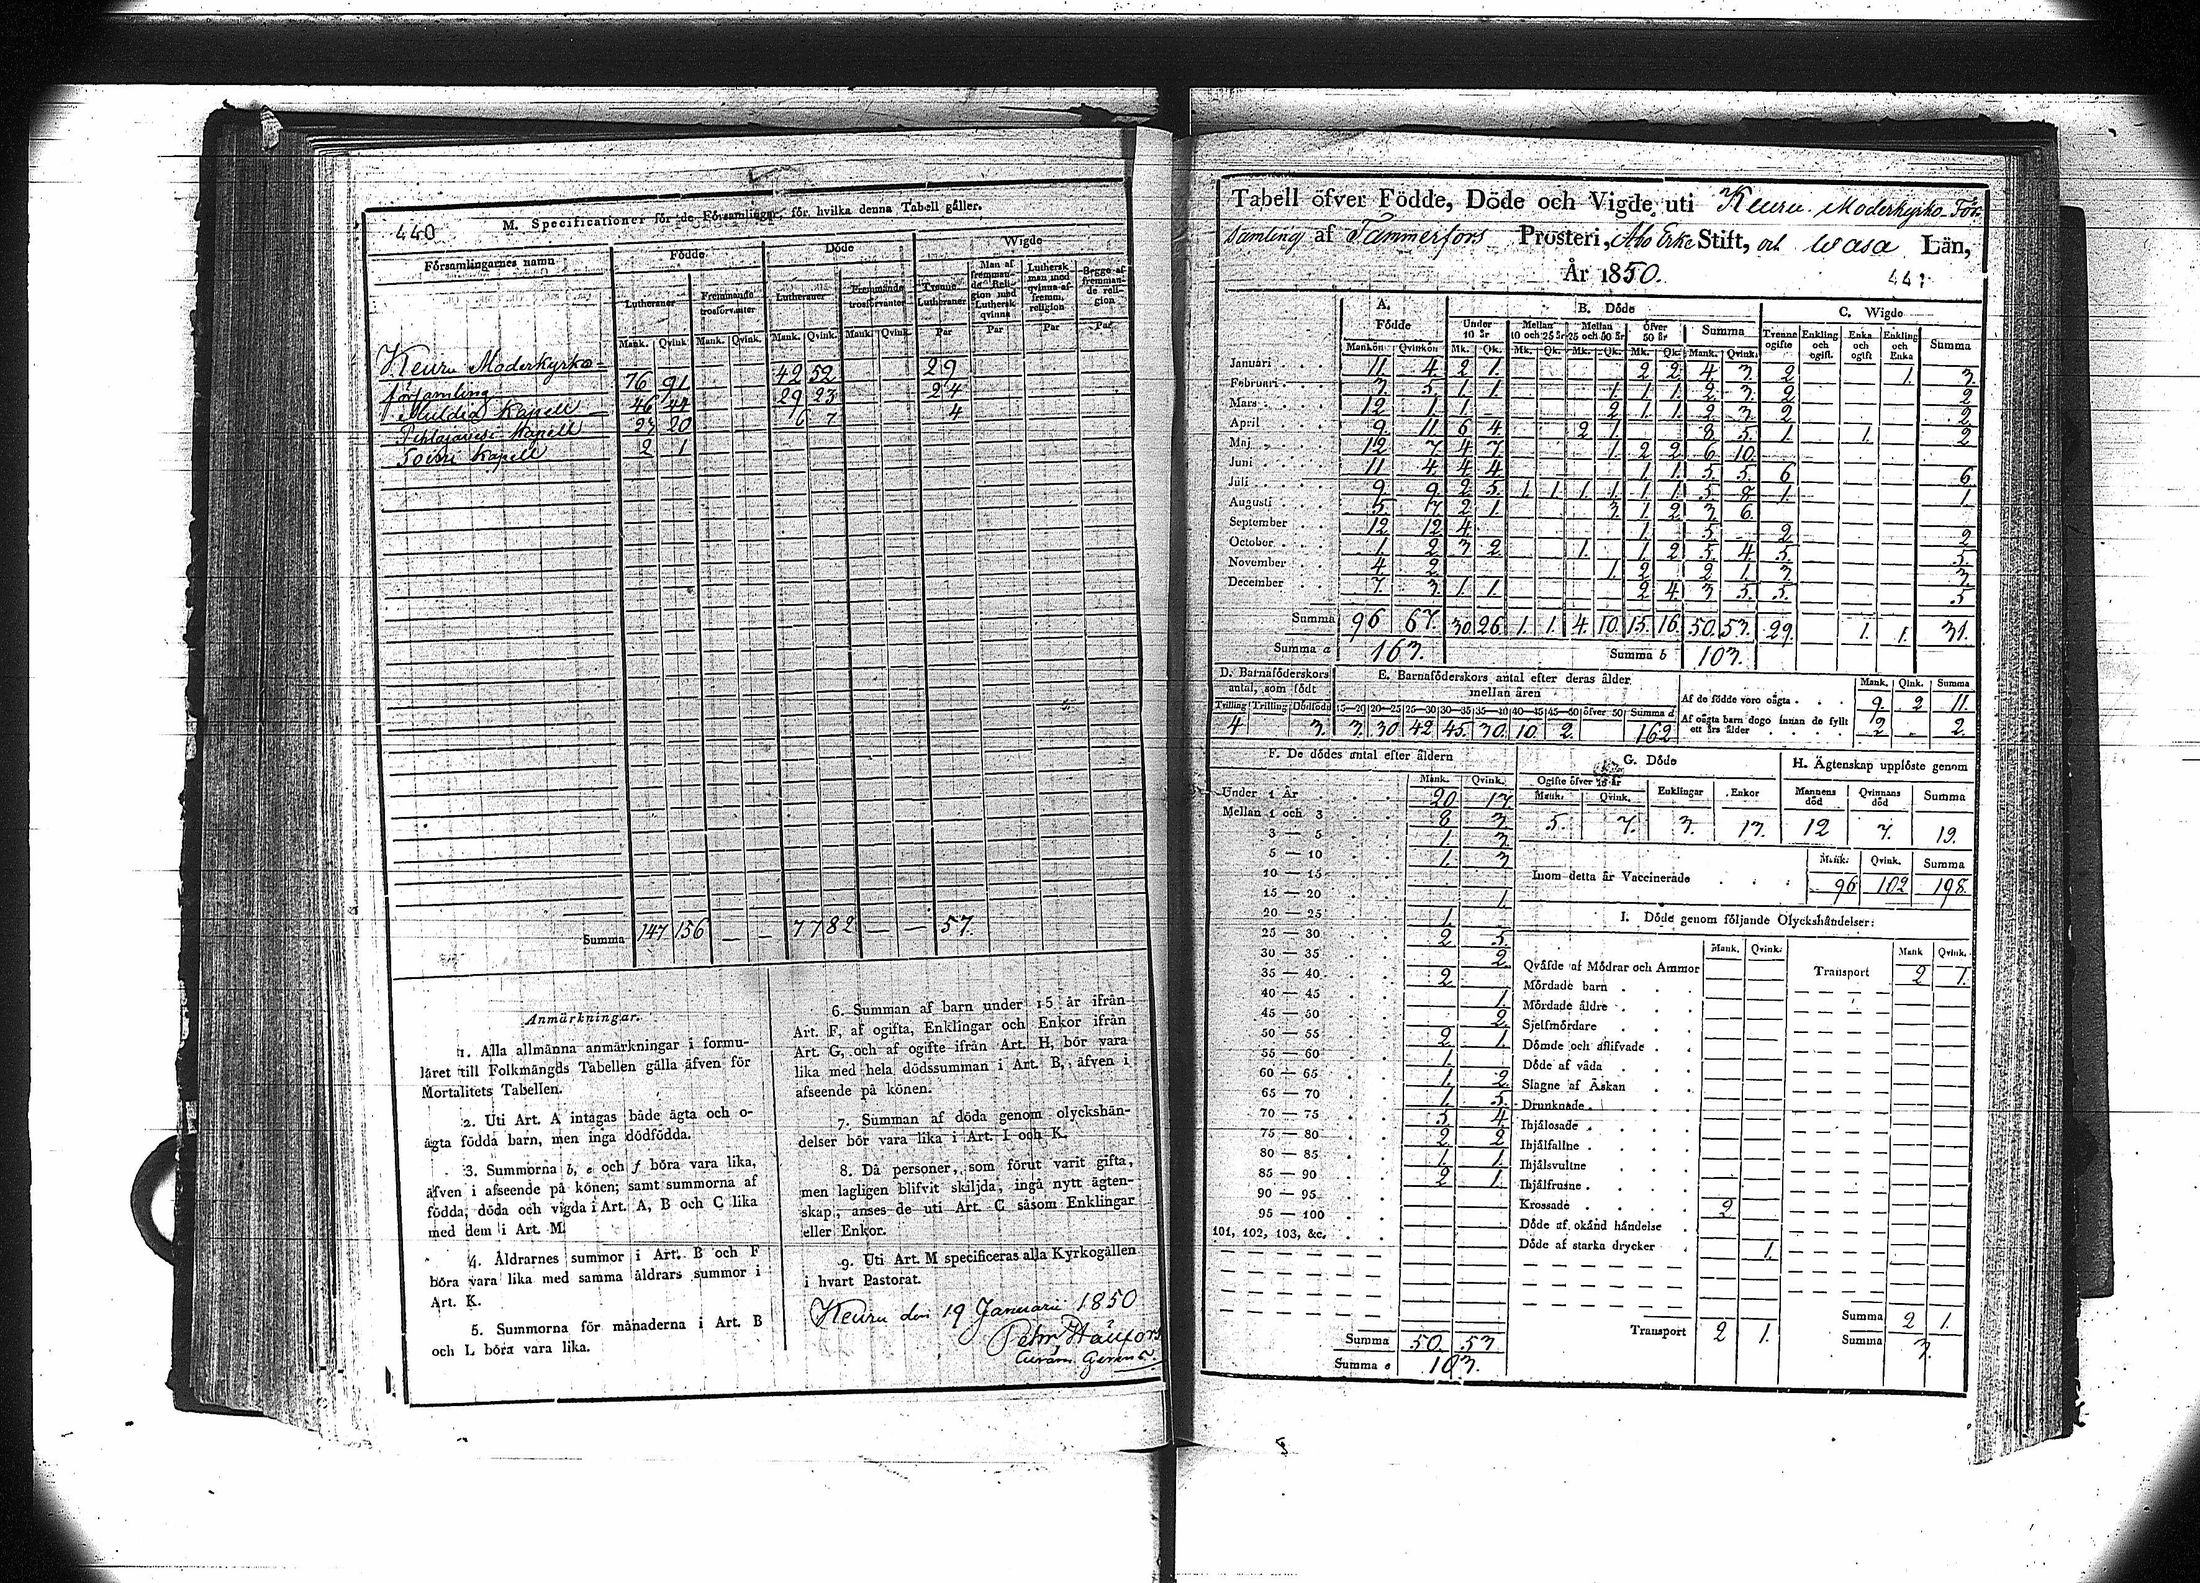 440
M. Specificationer för de Församlingar, för hvilka denna Tabell gäller.
Församlingarnes namn
Födde
Döde
Wigde
Lutheraner
Fremmande trosförvanter
Lutheraner
Fremmande trosförvanter
Tvenne Lutheraner
Man af fremmande Religion med Luthersk qvinna
Luthersk man med qvinna af fremm. religion
Begge af fremmande religion
Mank. Qvink. Mank. Qvink. Mank. Qvink. Mank. Qvink. Par Par Par Par
Keuru Moderkyrko=
församling 76 91 42 52 29
Multia Kapell 46 44 29 23 24
Pihlajavesi Kapell 23 20 6 7 4
Kapell 2 1
Summa 147 156 — — 77 82 — — 57.
Anmärkningar.
1. Alla allmänna anmärkningar i formu-
läret till Folkmängds Tabellen gälla äfven för
Mortalitets Tabellen.
2. Uti Art. A intagas både ägta och o-
ägta födda barn, men inga dödfödda.
3. Summorna b, e och f böra vara lika,
äfven i afseende på könen; samt summorna af
födda, döda och vigda i Art. A, B och C lika
med dem i Art. M.
4. Åldrarnes summor i Art. B och F
böra vara lika med samma åldrars summor i
Art. K.
5. Summorna för månaderna i Art. B
och L böra vara lika.
6. Summan af barn under 15 år ifrån
Art. F, af ogifta, Enklingar och Enkor ifrån
Art. G, och af ogifte ifrån Art. H, bör vara
lika med hela dödssumman i Art. B, äfven i
afseende på könen.
7. Summan af döda genom olyckshän-
delser bör vara lika i Art. I och K.
8. Då personer, som förut varit gifta,
men lagligen blifvit skiljda, ingå nytt ägten-
skap, anses de uti Art. C såsom Enklingar
eller Enkor.
9. Uti Art. M specificeras alla Kyrkogällen
i hvart Pastorat.
Keuru den 19 Januarii 1850
Tabell öfver Födde, Döde och Vigde, uti Keuru Moderkyrko För-
samling af Tammerfors Prosteri, Åbo Erke Stift, och Wasa Län,
År 1850.
441
A. Födde
B. Döde
C. Wigde
Under 10 år
Mellan 10 och 25 år
Mellan 25 och 50 år
Öfver 50 år
Summa
Tvenne ogifte
Enkling och ogift.
Enka och ogift
Enkling och Enka
Summa
Mankön Qvinkön Mk. Qk. Mk. Qk. Mk. Qk. Mk. Qk. Mank. Qvink.
Januari 11 4 2 1. 2 2 4 3. 2 1. 3.
Februari 3. 5 1 1 1 1 1 2 3. 2 2
Mars 12 1. 1 2 1 1 2 3. 2 2
April 9 11 6 4 2 1. 8 5. 1. 1. 2
Maj 12 7 4 7. 1. 2 2 6 10.
Juni 11 4 4 4 1. 1. 5. 5. 6 6
Juli 9 9 2 5. 1. 1 1. 1. 1 1 5 8 1. 1.
Augusti 5. 7 2 1. 3. 1. 2 3. 6.
September 12 12 4. 1. 5. 2 2
October 1. 2 3 2 1. 1. 2 5. 4. 5. 5.
November 4 2 1. 2 2 1. 3. 3.
December 7. 3. 1. 1. 2 4. 3 5. 5. 5
Summa 96 67. 30 26. 1. 1. 4. 10 15. 16 50. 53. 29. 1. 1. 31.
Summa a 163.
Summa b 103.
D. Barnaföderskors antal, som födt
Tvilling Trilling Dödfödd
4 3.
E. Barnaföderskors antal efter deras ålder mellan åren
15—20 20—25 25—30 30—35 35—40 40—45 45—50 öfver 50 Summa d
3. 30 42 45. 30. 10. 2. 162
Mank. Qink. Summa
Af de födde voro oägta 9. 2 11.
Af oägta barn dogo innan de fyllt ett års ålder 2 2.
F. De dödes antal efter åldern
Mank. Qvink.
Under 1 År 20 17.
Mellan 1 och 3 8 3.
3 — 5 1. 3.
5 — 10 1. 3
10 — 15
15 — 20 1.
20 — 25 1.
25 — 30 2 5.
30 — 35 2.
35 — 40 2
40 — 45 1.
45 — 50 2.
50 — 55 2 1.
55 — 60 1.
60 — 65 1. 2
65 — 70 1. 5.
70 — 75 5 4.
75 — 80 2 2
80 — 85 1. 1.
85 — 90 2 1.
90 — 95
95 — 100
101, 102, 103, &c.
Summa 50. 53
Summa e 103.
G. Döde
Ogifte öfver 15 år
Mank. Qvink. Enklingar Enkor
5. 7. 3. 13.
H. Ägtenskap upplöste genom
Mannens död Qvinnans död Summa
12 7. 19.
Mank. Qvink. Summa
Inom detta år Vaccinerade 96 102 198.
I. Döde genom följande Olyckshändelser:
Mank. Qvink. Mank Qvink.
Qväfde af Mödrar och Ammor
Transport 2 1.
Mördade barn
Mördade äldre
Sjelfmördare
Dömde och aflifvade
Döde af våda
Slagne af Åskan
Drunknade
Ihjälosade
Ihjälfallne
Ihjälsvultne
Ihjälfrusne
Krossade 2
Döde af okänd händelse
Döde af starka drycker 1.
Transport 2 1.
Summa 2 1.
Summa 3.